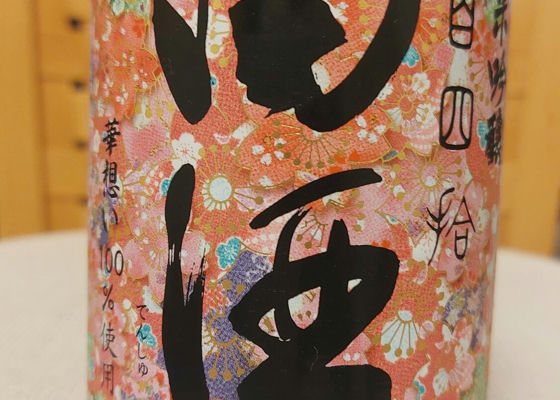 米吟醸
百四拾
田酒
でんしゅ
華想い100%使用